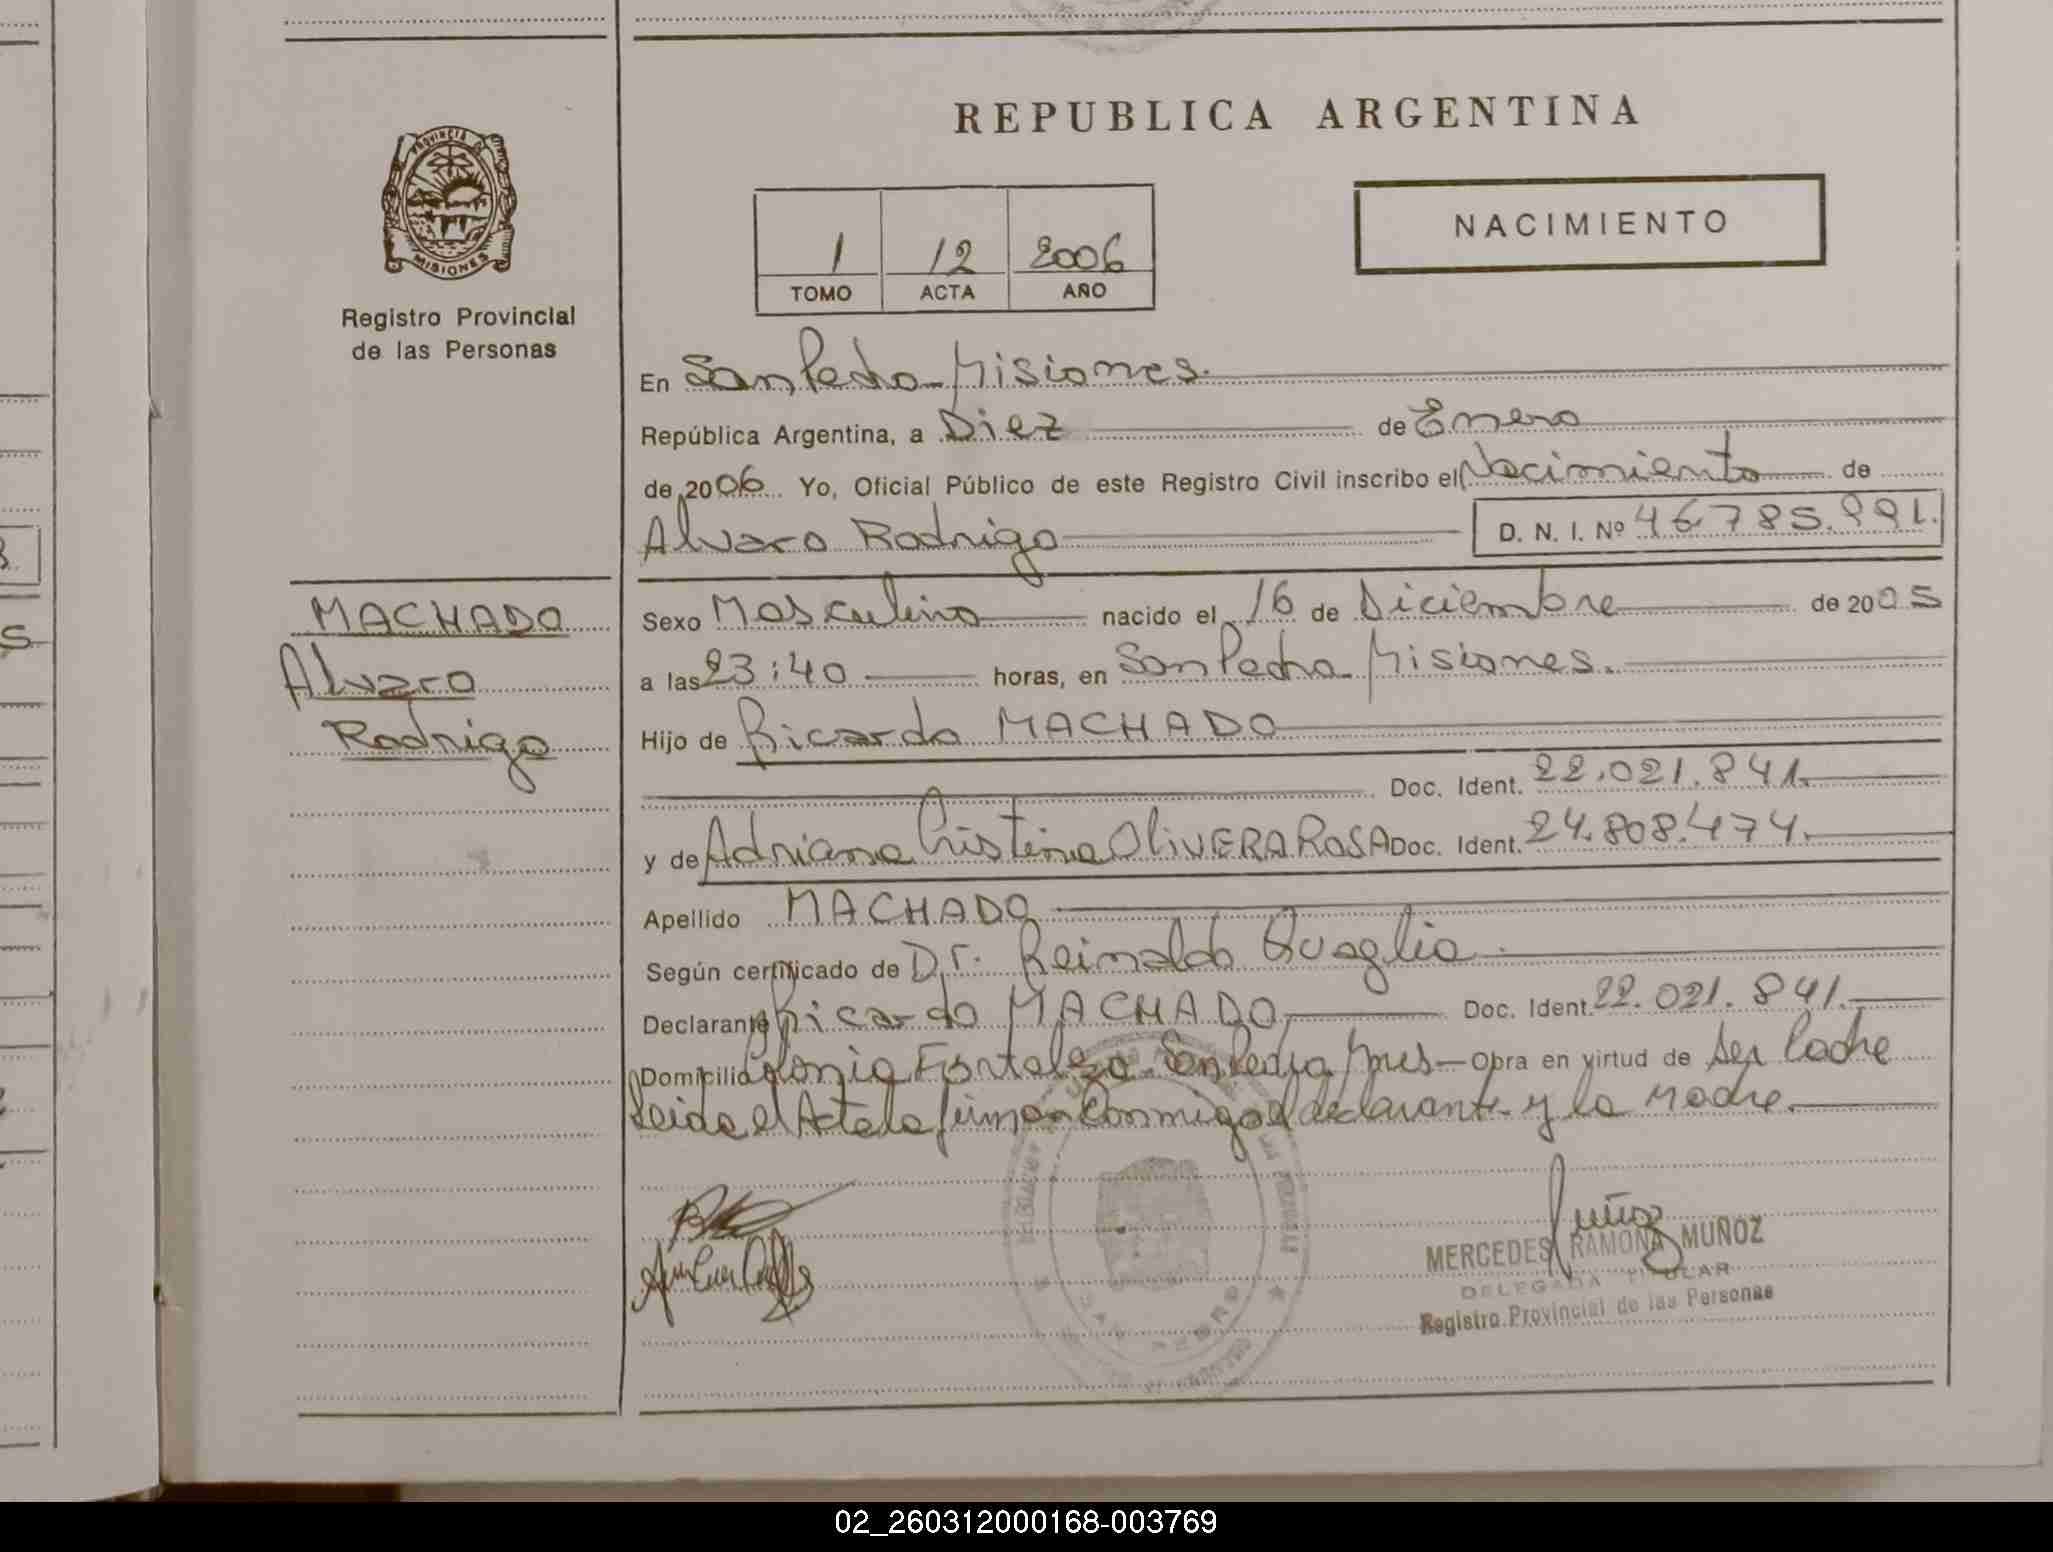 REPUBLICA ARGENTINA
PROVINCIA DE
MISIONES
Registro Provincial
de las Personas
NACIMIENTO
1 12 2006
TOMO ACTA AÑO
En San Pedro - Misiones.
República Argentina, a Diez de Enero
de 2006 Yo, Oficial Público de este Registro Civil inscribo el Nacimiento de
Alvaro Rodrigo D. N. I. Nº 46.785.991.
MACHADO
Alvaro
Rodrigo
Sexo Masculino nacido el 16 de Diciembre de 2005
a las 23:40 horas, en San Pedro Misiones.
Hijo de Ricardo MACHADO
Doc. Ident. 22.021.841.
y de Adriana Cristina OLIVERA ROSA Doc. Ident. 24.808.474.
Apellido MACHADO
Según certificado de Dr. Reinaldo Quaglia.
Declarante Ricardo MACHADO Doc. Ident. 22.021.841.
Domicilio Colonia Fortaleza - San Pedro Mnes - Obra en virtud de Ser Padre
Leida el Acta la firman Conmigo el declarante y la Madre.
MERCEDES RAMONA MUÑOZ
DELEGADA TITULAR
Registro Provincial de las Personas
02_260312000168-003769